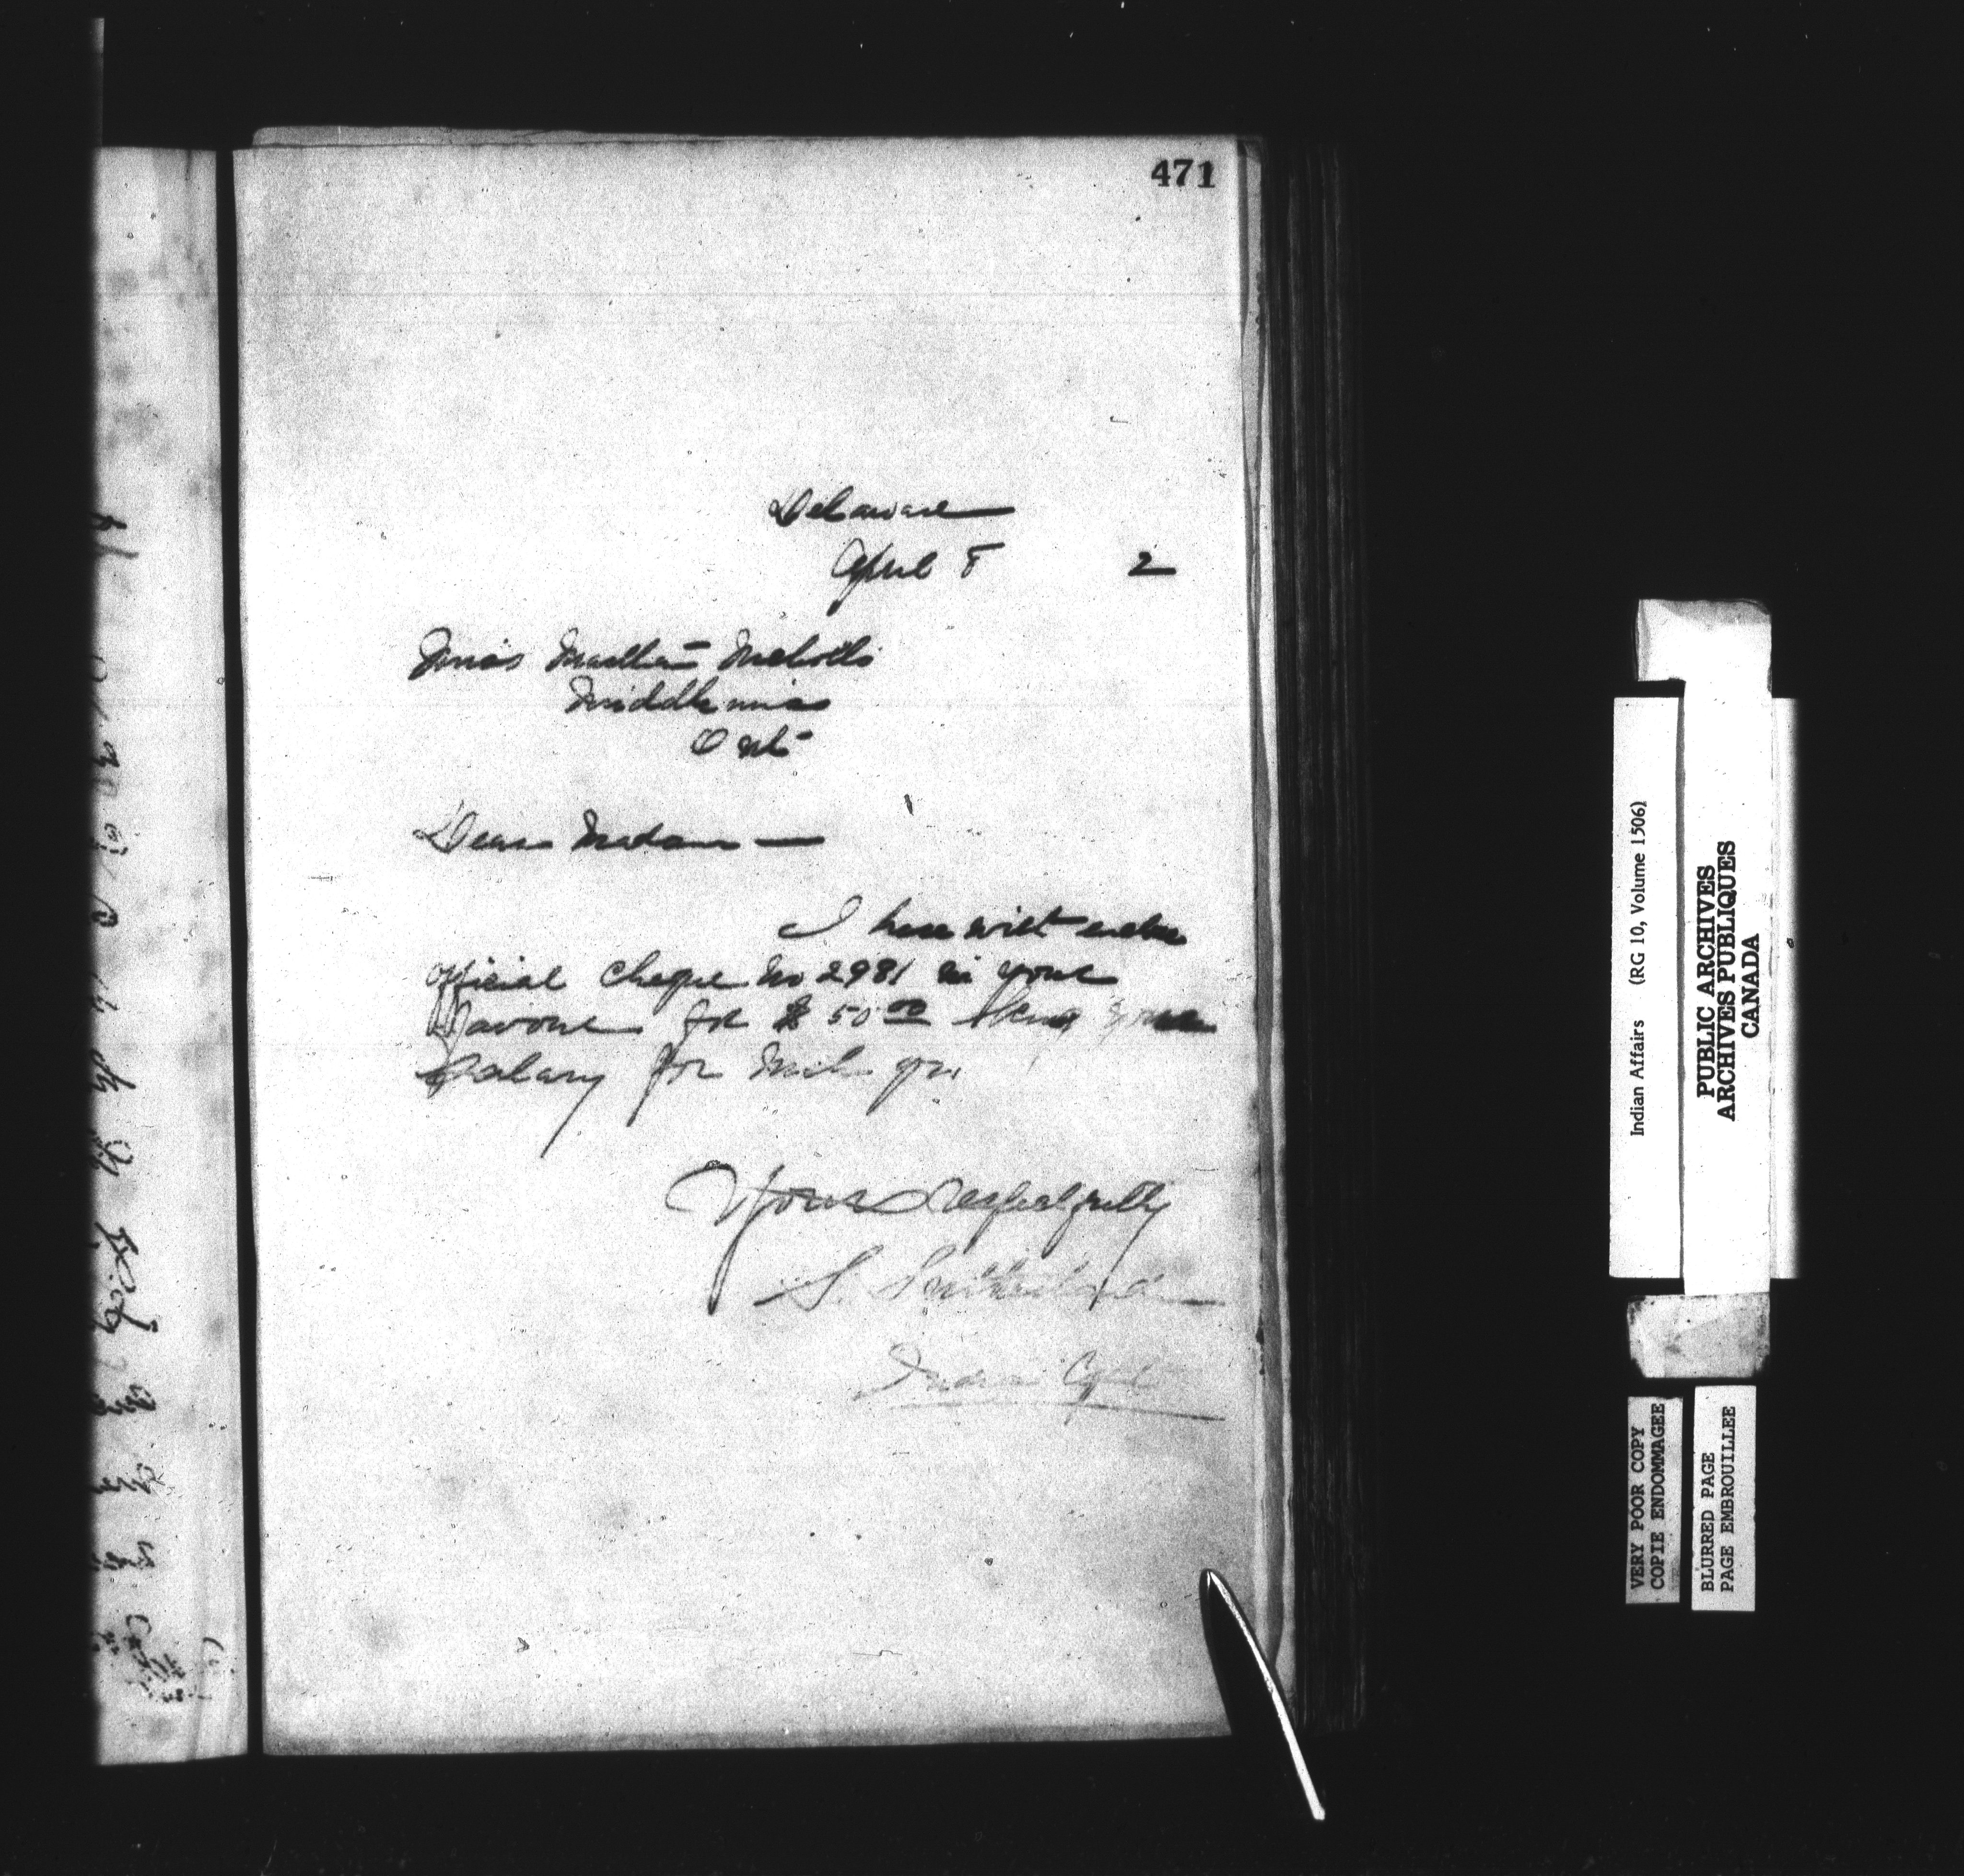 471
Delaware
April 8 2
Miss Martha Nicholls
Middlemiss
Ont
Dear Madam —
I herewith enclose
official cheque No 2981 in your
favour for $50 00 being your
Salary for Mch qr.
Yours Respectfully
S. Sutherland
Indian Agt
Indian Affairs (RG 10, Volume 1506)
PUBLIC ARCHIVES
ARCHIVES PUBLIQUES
CANADA
VERY POOR COPY
COPIE ENDOMMAGEE
BLURRED PAGE
PAGE EMBROUILLEE